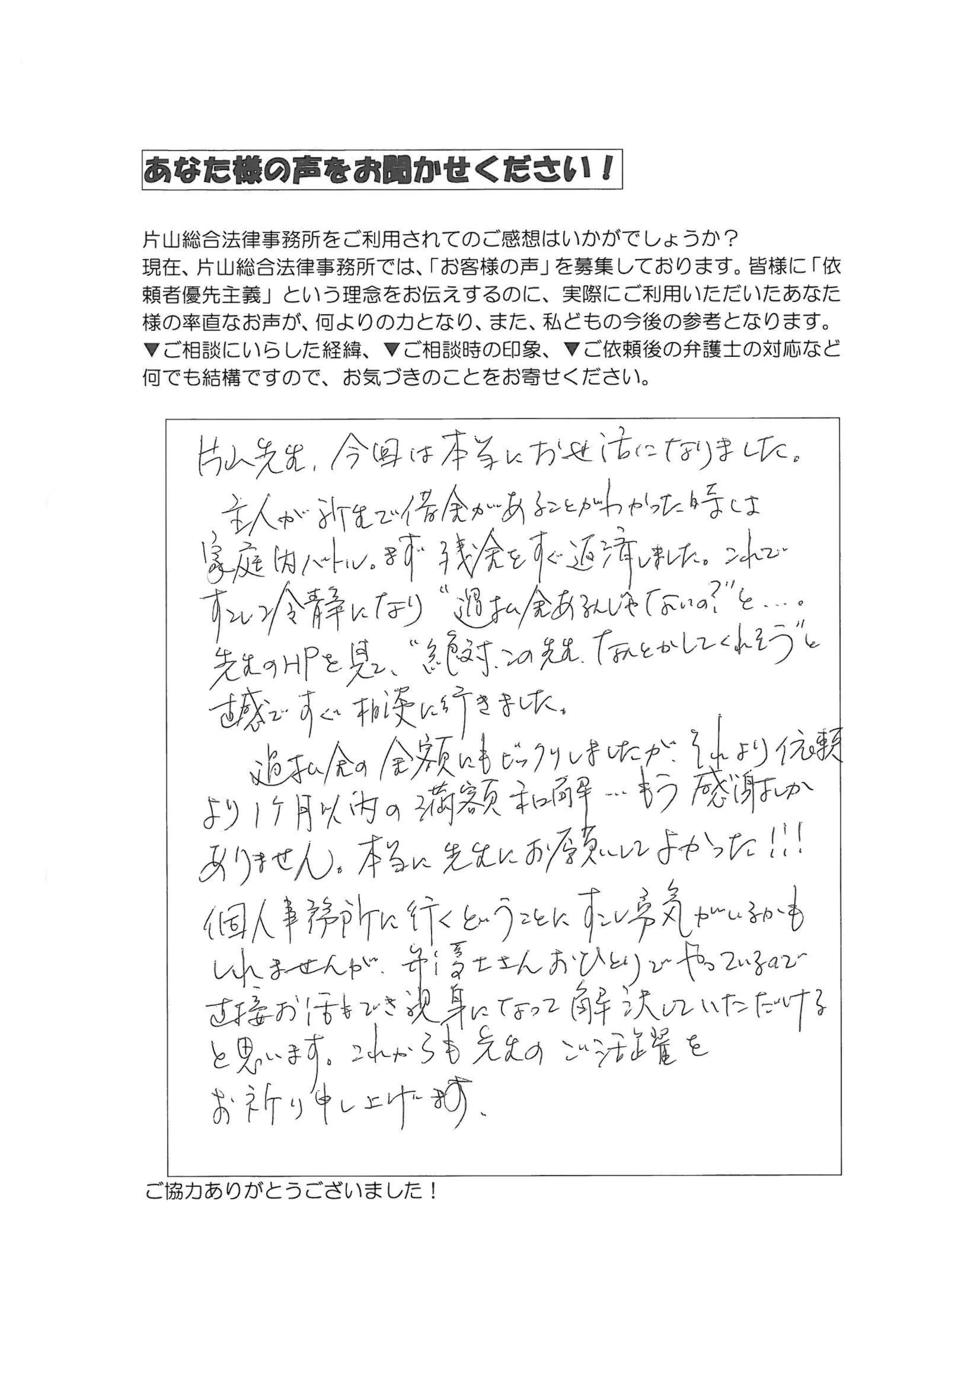 あなた様の声をお聞かせください！
片山総合法律事務所をご利用されてのご感想はいかがでしょうか？
現在、片山総合法律事務所では、「お客様の声」を募集しております。皆様に「依
頼者優先主義」という理念をお伝えするのに、実際にご利用いただいたあなた
様の率直なお声が、何よりの力となり、また、私どもの今後の参考となります。
▼ご相談にいらした経緯、▼ご相談時の印象、▼ご依頼後の弁護士の対応など
何でも結構ですので、お気づきのことをお寄せください。
片山先生、今回は本当にお世話になりました。
主人が新生で借金があることがわかった時は
家庭内バトル。まず残金をすぐ返済しました。これで
すこし冷静になり“過払金あるんじゃないの？”と…。
先生のHPを見て、“絶対、この先生、なんとかしてくれそう”と
直感ですぐ相談に行きました。
過払金の金額にもビックリしましたが、それより依頼
より1ケ月以内の満額和解…もう感謝しか
ありません。本当に先生にお願いしてよかった!!!
個人事務所に行くということにすこし勇気がいるかも
しれませんが、弁護士さんおひとりでやっているので
直接お話もでき親身になって解決していただける
と思います。これからも先生のご活躍を
お祈り申し上げます。
ご協力ありがとうございました！